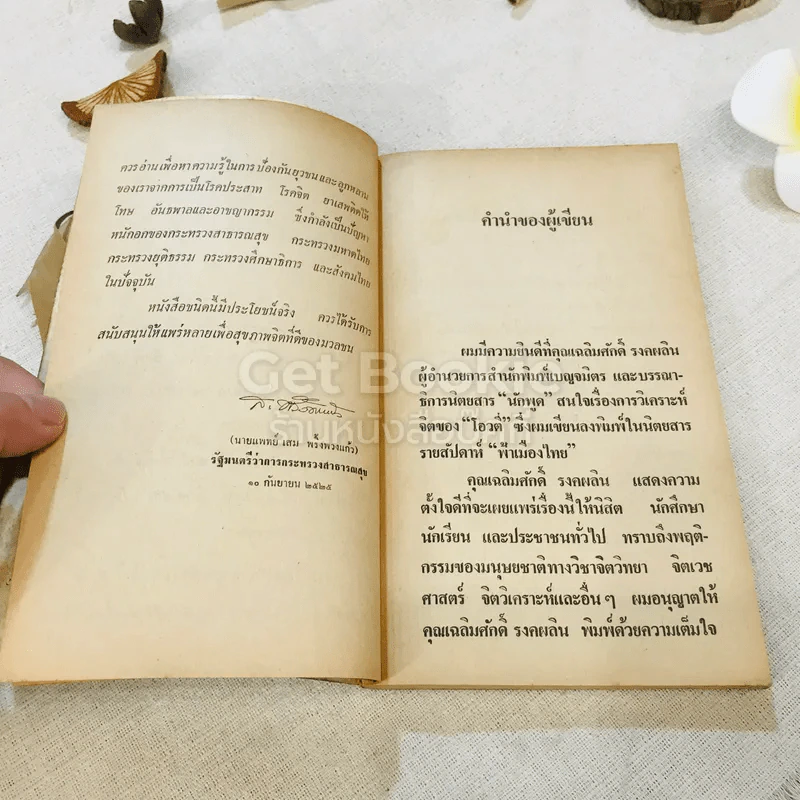 ควรอ่านเพื่อหาความรู้ในการป้องกันยุวชนและลูกหลาน
ของเราจากการเป็นโรคประสาท โรคจิต ยาเสพติดให้
โทษ อันธพาลและอาชญากรรม ซึ่งกำลังเป็นปัญหา
หนักอกของกระทรวงสาธารณสุข กระทรวงมหาดไทย
กระทรวงยุติธรรม กระทรวงศึกษาธิการ และสังคมไทย
ในปัจจุบัน
หนังสือชนิดนี้มีประโยชน์จริง ควรได้รับการ
สนับสนุนให้แพร่หลายเพื่อสุขภาพจิตที่ดีของมวลชน
(นายแพทย์ เสม พริ้งพวงแก้ว)
รัฐมนตรีว่าการกระทรวงสาธารณสุข
๑๐ กันยายน ๒๕๒๕
คำนำของผู้เขียน
ผมมีความยินดีที่คุณเฉลิมศักดิ์ รงคผลิน
ผู้อำนวยการสำนักพิมพ์เบญจมิตร และบรรณา-
ธิการนิตยสาร “นักพูด” สนใจเรื่องการวิเคราะห์
จิตของ “โอวตี่” ซึ่งผมเขียนลงพิมพ์ในนิตยสาร
รายสัปดาห์ “ฟ้าเมืองไทย”
คุณเฉลิมศักดิ์ รงคผลิน แสดงความ
ตั้งใจดีที่จะเผยแพร่เรื่องนี้ให้นิสิต นักศึกษา
นักเรียน และประชาชนทั่วไป ทราบถึงพฤติ-
กรรมของมนุษยชาติทางวิชาจิตวิทยา จิตเวช
ศาสตร์ จิตวิเคราะห์และอื่น ๆ ผมอนุญาตให้
คุณเฉลิมศักดิ์ รงคผลิน พิมพ์ด้วยความเต็มใจ
Get Bookie